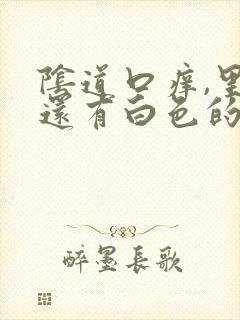 陰道口痒,里
還有白色的
醉墨長歌